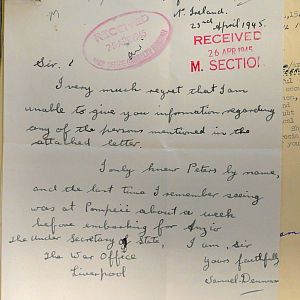 N. Ireland.
23rd April 1945.
RECEIVED
RECEIVED
26 APR 1945
M. SECTION
Sir.
I very much regret that I am
unable to give you information regarding
any of the persons mentioned in the
attached letter.
I only knew Peters by name,
and the last time I remember seeing
was at Pompeii about a week
before embarking for Anzio
The Under Secretary of State, I am, sir
The War Office Yours faithfully
Liverpool Samuel